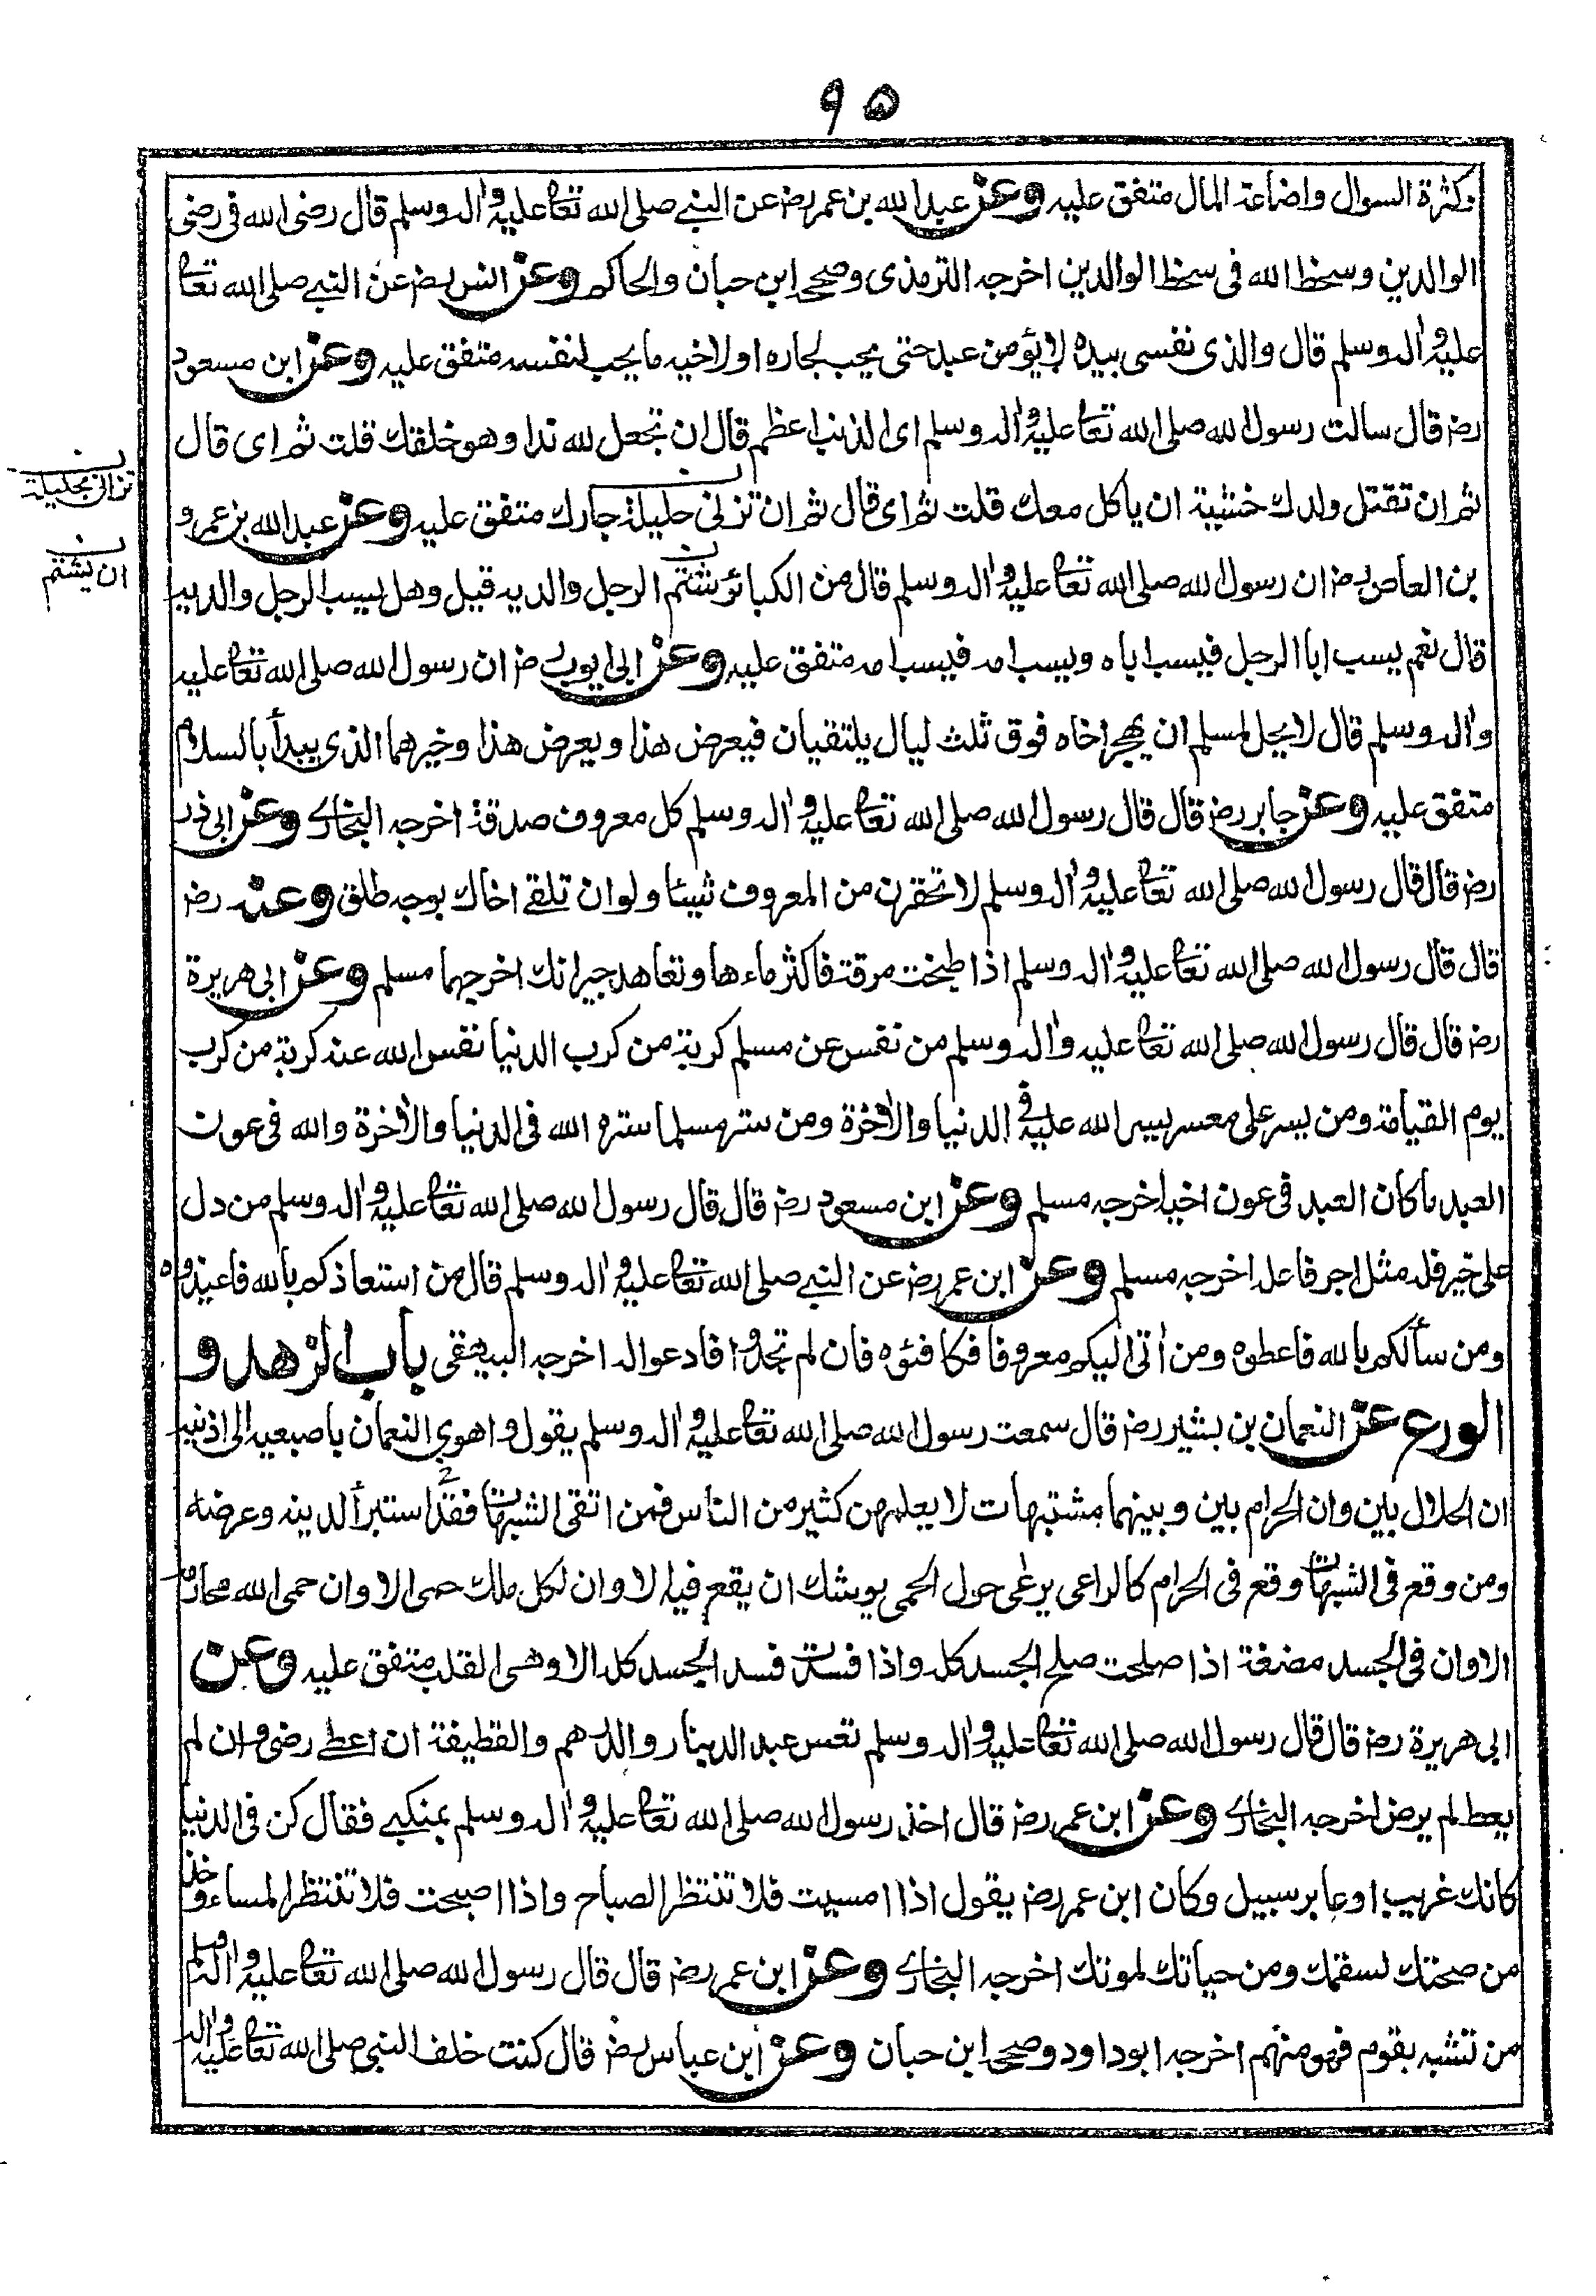 ٩٥
وكثرة السوال واضاعة المال متفق عليه وعن عبد الله بن عمر رضـ عن النبي صلى الله تعا عليه واله وسلم قال رضى الله فى رضى
الوالدين وسخط الله فى سخط الوالدين اخرجه الترمذى وصححه ابن حبان والحاكم وعن انس رضـ عن النبي صلى الله تعا
عليه واله وسلم قال والذى نفسى بيده لا يؤمن عبد حتى يحب لجاره او لاخيه ما يحب لنفسه متفق عليه وعن ابن مسعود
رضـ قال سالت رسول الله صلى الله تعا عليه واله وسلم اى الذنب اعظم قال ان تجعل لله ندا وهو خلقك قلت ثم اى قال
ثم ان تقتل ولدك خشية ان ياكل معك قلت ثم اى قال ثم ان تزنى حليلة جارك متفق عليه وعن عبد الله بن عمرو
تزانى بحليلة
بن العاص رضـ ان رسول الله صلى الله تعا عليه واله وسلم قال من الكبائر شتم الرجل والديه قيل وهل يسب الرجل والديه
ان يشتم
قال نعم يسب ابا الرجل فيسب اباه ويسب امه فيسب امه متفق عليه وعن ابى ايوب رضـ ان رسول الله صلى الله تعا عليه
واله وسلم قال لا يحل لمسلم ان يهجر اخاه فوق ثلث ليال يلتقيان فيعرض هذا ويعرض هذا وخيرهما الذى يبدأ بالسلام
متفق عليه وعن جابر رضـ قال قال رسول الله صلى الله تعا عليه واله وسلم كل معروف صدقة اخرجه البخارى وعن ابى ذر
رضـ قال قال رسول الله صلى الله تعا عليه واله وسلم لا تحقرن من المعروف شيئا ولو ان تلقى اخاك بوجه طلق وعنه رضـ
قال قال رسول الله صلى الله تعا عليه واله وسلم اذا طبخت مرقة فاكثر ماءها وتعاهد جيرانك اخرجهما مسلم وعن ابى هريرة
رضـ قال قال رسول الله صلى الله تعا عليه واله وسلم من نفس عن مسلم كربة من كرب الدنيا نفس الله عنه كربة من كرب
يوم القيامة ومن يسر على معسر يسر الله عليه فى الدنيا والاخرة ومن ستر مسلما ستره الله فى الدنيا والاخرة والله فى عون
العبد ما كان العبد فى عون اخيه اخرجه مسلم وعن ابن مسعود رضـ قال قال رسول الله صلى الله تعا عليه واله وسلم من دل
على خير فله مثل اجر فاعله اخرجه مسلم وعن ابن عمر رضـ عن النبي صلى الله تعا عليه واله وسلم قال من استعاذكم بالله فاعيذوه
ومن سألكم بالله فاعطوه ومن اتى اليكم معروفا فكافئوه فان لم تجدوا فادعوا له اخرجه البيهقى باب الزهد و
الورع عن النعمان بن بشير رضـ قال سمعت رسول الله صلى الله تعا عليه واله وسلم يقول واهوى النعمان باصبعيه الى اذنيه
ان الحلال بين وان الحرام بين وبينهما مشتبهات لا يعلمهن كثير من الناس فمن اتقى الشبهات فقد استبرأ لدينه وعرضه
ومن وقع فى الشبهات وقع فى الحرام كالراعى يرعى حول الحمى يوشك ان يقع فيه الا وان لكل ملك حمى الا وان حمى الله محارمه
الا وان فى الجسد مضغة اذا صلحت صلح الجسد كله واذا فسدت فسد الجسد كله الا وهى القلب متفق عليه وعن
ابى هريرة رضـ قال قال رسول الله صلى الله تعا عليه واله وسلم تعس عبد الدينار والدرهم والقطيفة ان اعطى رضى وان لم
يعط لم يرض اخرجه البخارى وعن ابن عمر رضـ قال اخذ رسول الله صلى الله تعا عليه واله وسلم بمنكبي فقال كن فى الدنيا
كانك غريب او عابر سبيل وكان ابن عمر رضـ يقول اذا امسيت فلا تنتظر الصباح واذا اصبحت فلا تنتظر المساء وخذ
من صحتك لسقمك ومن حياتك لموتك اخرجه البخارى وعن ابن عمر رضـ قال قال رسول الله صلى الله تعا عليه واله وسلم
من تشبه بقوم فهو منهم اخرجه ابو داود وصححه ابن حبان وعن ابن عباس رضـ قال كنت خلف النبى صلى الله تعا عليه واله